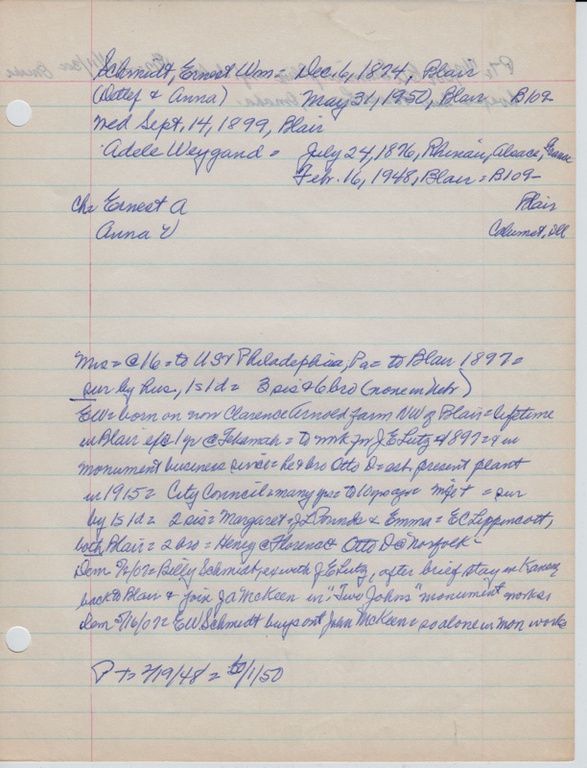 Schmidt, Ernest Wm = Dec. 6, 1874, Blair
(Detlef & Anna) May 31, 1950, Blair B109
Wed Sept. 14, 1899, Blair
Adele Weygand = July 24, 1876, Rhinair, Alsace, France
Feb. 16, 1948, Blair = B109
Ch = Ernest A Blair
Anna V Calumet, Ill
Mrs = @ 16 = to US & Philadelphia, Pa = to Blair 1897 =
sur by hus, 1s 1d = 3 sis & 6 bro (none in Nebr)
EW = born on now Clarence Arnold farm NW of Blair = lifetime
in Blair exc 1 yr @ Tekamah = to work for J E Lutz @ 1897 = & in
monument business since = he & bro Otto D = est. present plant
in 1915 = City Council = many yrs = to 10 yrs ago = = sur
by 1s 1d = 2 sis = Margaret = J L Pounds & Emma = E C Lippincott,
both Blair = 2 bro = Henry @ Florence & Otto D @ Norfolk
Dem = Billy Schmidt, ex with J E Lutz, after brief stay in Kansas
back to Blair & join J A McKeen in "Two Johns" monument works
Dem 5/16/07 = EW Schmidt buys out John McKeen = so alone in mon works
P T = 2/19/48 = 6/1/50